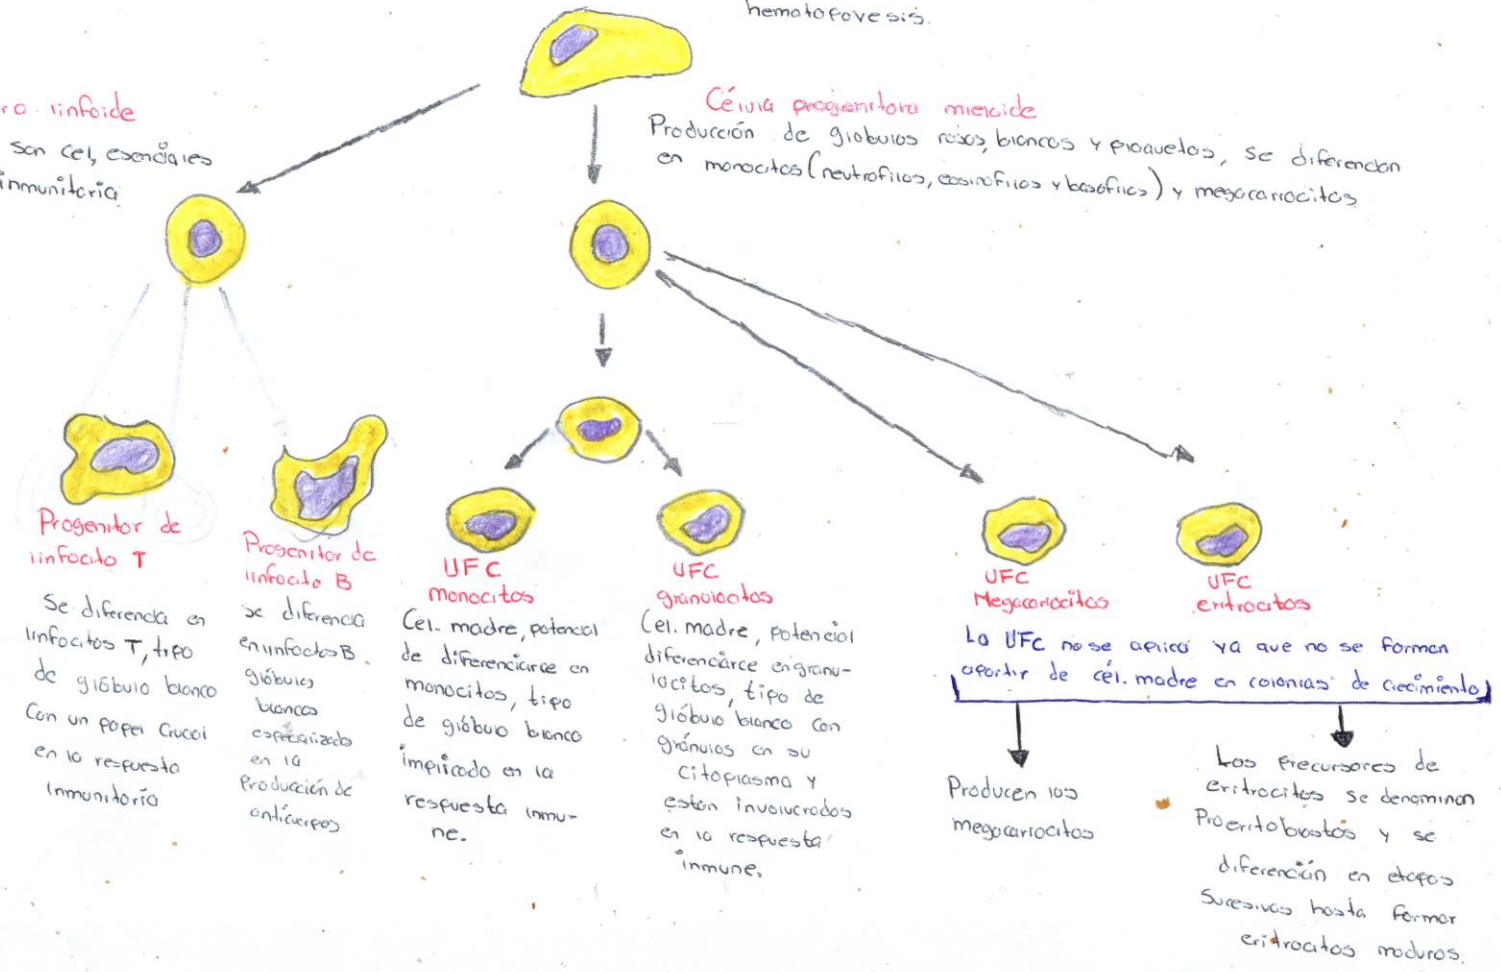 hematopoyesis.
ra linfoide
son cel, esenciales
inmunitaria
Célula progenitora mieloide
Producción de glóbulos rojos, blancos y plaquetas, se diferencian
en monocitos (neutrofilos, eosinofilos y basofilos) y megacariocitos
Progenitor de
linfocito T
Se diferencia en
linfocitos T, tipo
de glóbulo blanco
Con un papel crucal
en la respuesta
Inmunitoria
Progenitor de
linfocito B
se diferencia
en linfocitos B.
glóbulos
blancos
especializado
en la
Producción de
anticuerpos
UFC
monocitos
Cél. madre, potencial
de diferenciarce en
monocitos, tipo
de glóbulo blanco
implicado en la
respuesta inmu-
ne.
UFC
granulocitos
Cél. madre, potencial
diferenciarce en granu-
locitos, tipo de
glóbulo blanco con
gránulos en su
citoplasma y
están involucrados
en la respuesta
inmune,
UFC
Megacariocitos
UFC
eritrocitos
La UFC no se aplica ya que no se forman
apartir de cél. madre en colonias de crecimiento
Producen los
megacariocitos
Los Precursores de
eritrocitos se denominan
Proeritoblastos y se
diferención en etapas
Sucesivas hasta formar
eritrocitos maduros.